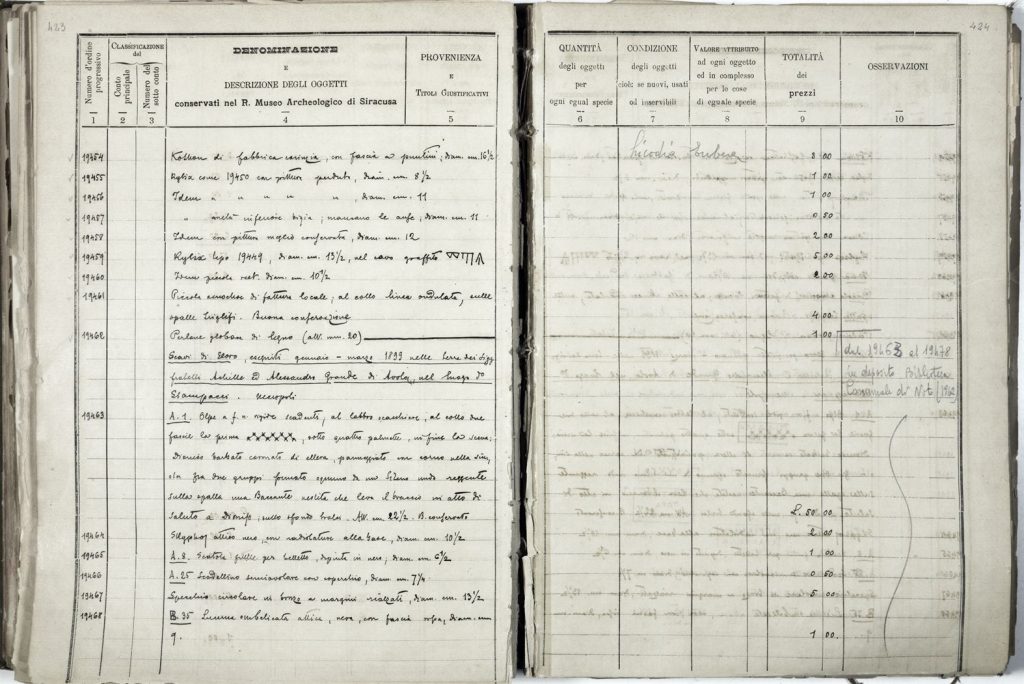 423
Numero d'ordine progressivo
CLASSIFICAZIONE del
Conto principale
Numero del sotto conto
DENOMINAZIONE
E
DESCRIZIONE DEGLI OGGETTI
conservati nel R. Museo Archeologico di Siracusa
PROVENIENZA
E
TITOLI GIUSTIFICATIVI
1 2 3 4 5
19454 di fabbrica corinzia, con fascia a puntini; diam. cm. 16 1/2
19455 Kylix come 19450 con pitture perdute, diam. cm. 8 1/2
19456 Idem " " " " " , diam. cm. 11
19457 " metà inferiore ; mancano le anse, diam. cm. 11
19458 Idem con pittura meglio conservata, diam. cm. 12
19459 Kylix tipo 19449, diam. cm. 13 1/2, nel cavo graffito
19460 Idem piccola diam. cm. 10 1/2
19461 Piccola oinochoe di fattura locale; al collo linea ondulata, sulle
spalle triglifi. Buona conservazione
19462 Perlone globare di legno (alt. mm. 20)
Scavi di Eloro, eseguiti gennaio - marzo 1899 nelle terre dei Sigg.
fratelli Achille ed Alessandro Grande di Avola, nel luogo d°
Stampacci. Necropoli
19463 A. 1. Olpe a f. n. scadente, al labbro scacchiere, al collo due
fascie la prima xxxxxx, sotto quattro palmette, infine la scena:
Dioniso barbato coronato di ellera, panneggiato con corno nella sin,
sta fra due gruppi formato ognuno da un Sileno nudo reggente
sulla spalla una Baccante vestita che leva il braccio in atto di
saluto a Dioniso; sullo sfondo tralci. Alt. cm. 22 1/2. B. conservata
19464 Skyphos attico nero, con radiolature alla base, diam. cm. 10 1/2
19465 A. 8. Scatola fittile per belletto, dipinta in nero, diam. cm. 6 1/2
19466 A. 25 Scodellino con coperchio, diam. cm. 7 1/4
19467 Specchio circolare di bronzo a margini rialzati, diam. cm. 13 1/2
19468 B. 35 Lucerna ombelicata attica, nera, con fascia rossa, diam. cm.
9.
424
QUANTITÀ
degli oggetti
per
ogni egual specie
CONDIZIONE
degli oggetti
cioè: se nuovi, usati
od inservibili
VALORE ATTRIBUITO
ad ogni oggetto
ed in complesso
per le cose
di eguale specie
TOTALITÀ
dei
prezzi
OSSERVAZIONI
6 7 8 9 10
Licodia Eubea
3 00
1 00
1 00
0 50
2 00
5 00
2 00
4 00
1 00
dal 19463 al 19478
in deposito Biblioteca
Comunale di Noto (1962)
L. 50 00
2 00
1 00
0 50
5 00
1 00